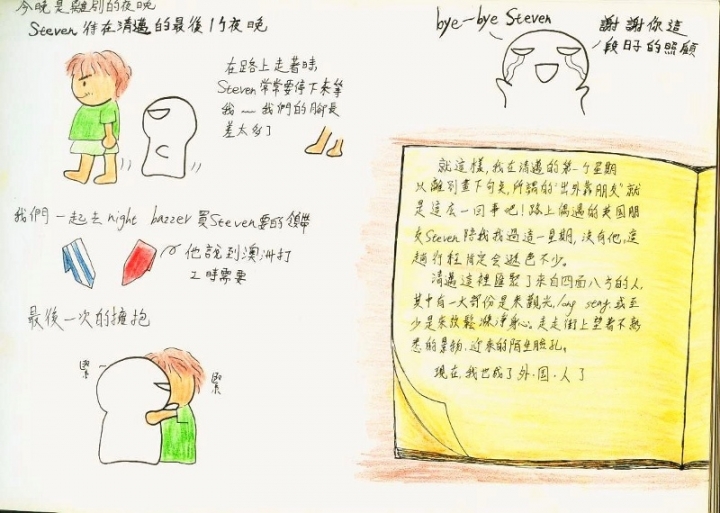 今晚是離別的夜晚
Steven待在清邁的最後1个夜晚
在路上走著時,
Steven常常要停下來等
我～我們的腳長
差太多了
我們一起去night bazzer買Steven要的領帶
他說到澳洲打
工時需要
最後一次的擁抱
緊～
緊
bye-bye Steven
謝謝你這
段日子的照顧
就這樣,我在清邁的第一个星期
以離別畫下句點,所謂的"出外靠朋友"就
是這麼一回事吧!路上偶遇的英国朋
友Steven陪我找過這一星期,沒有他,這
趟行程肯定會遜色不少。
清邁這裡匯聚了來自四面八方的人,
其中有一大部份是來觀光,long stay,或至
少是來放鬆滌淨身心。走走街上望著不熟
悉的景物,近來的陌生臉孔。
現在,我也成了外.国.人了